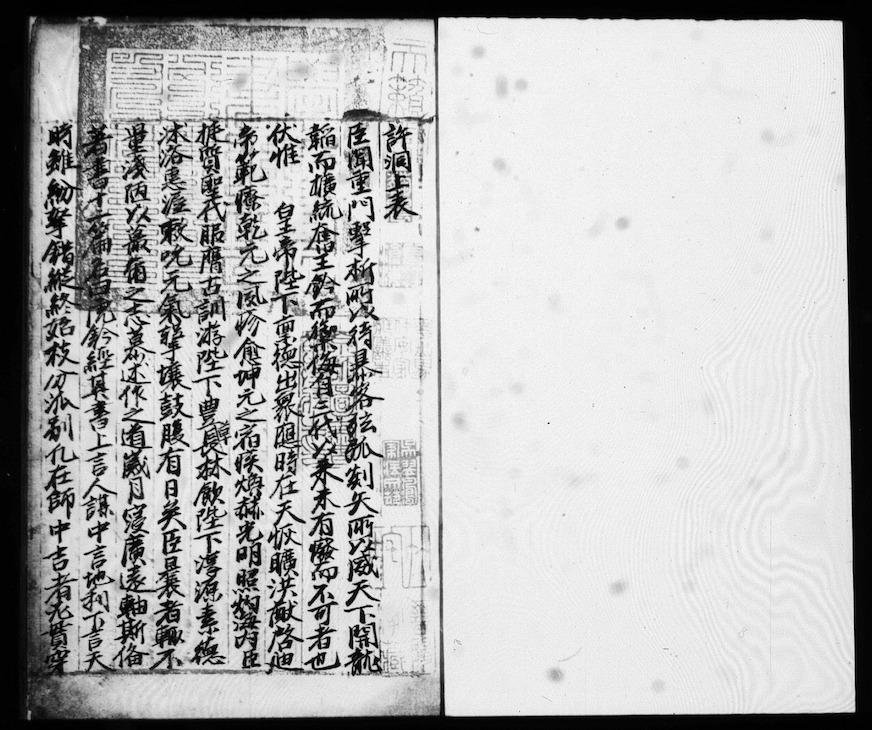 許洞上表
臣聞重門擊柝所以待暴客弦弧剡矢所以威天下開龍
韜而擴統奮玉鈐而禦侮有三代以来未有癈而不可者也
伏惟 皇帝陛下稟德出震應時在天恢曠洪猷啓迪
帝範療乾元之風物愈坤元之宿疾煥赫光明照燭海內臣
挺質聖代服膺古訓游陛下豊草長林飲陛下淳源素德
沐浴惠澤軟吮元氣擊壤鼓腹有日矣臣曩者輒不
量淺陋以之志慕述作之道歲月寖廣遠軸斯備
著書十二篇名曰虎鈐經其書上言人謀中言地利下言天
時雖紛拏錯縱終始枝分派別凡在師中吉者尤貫穿